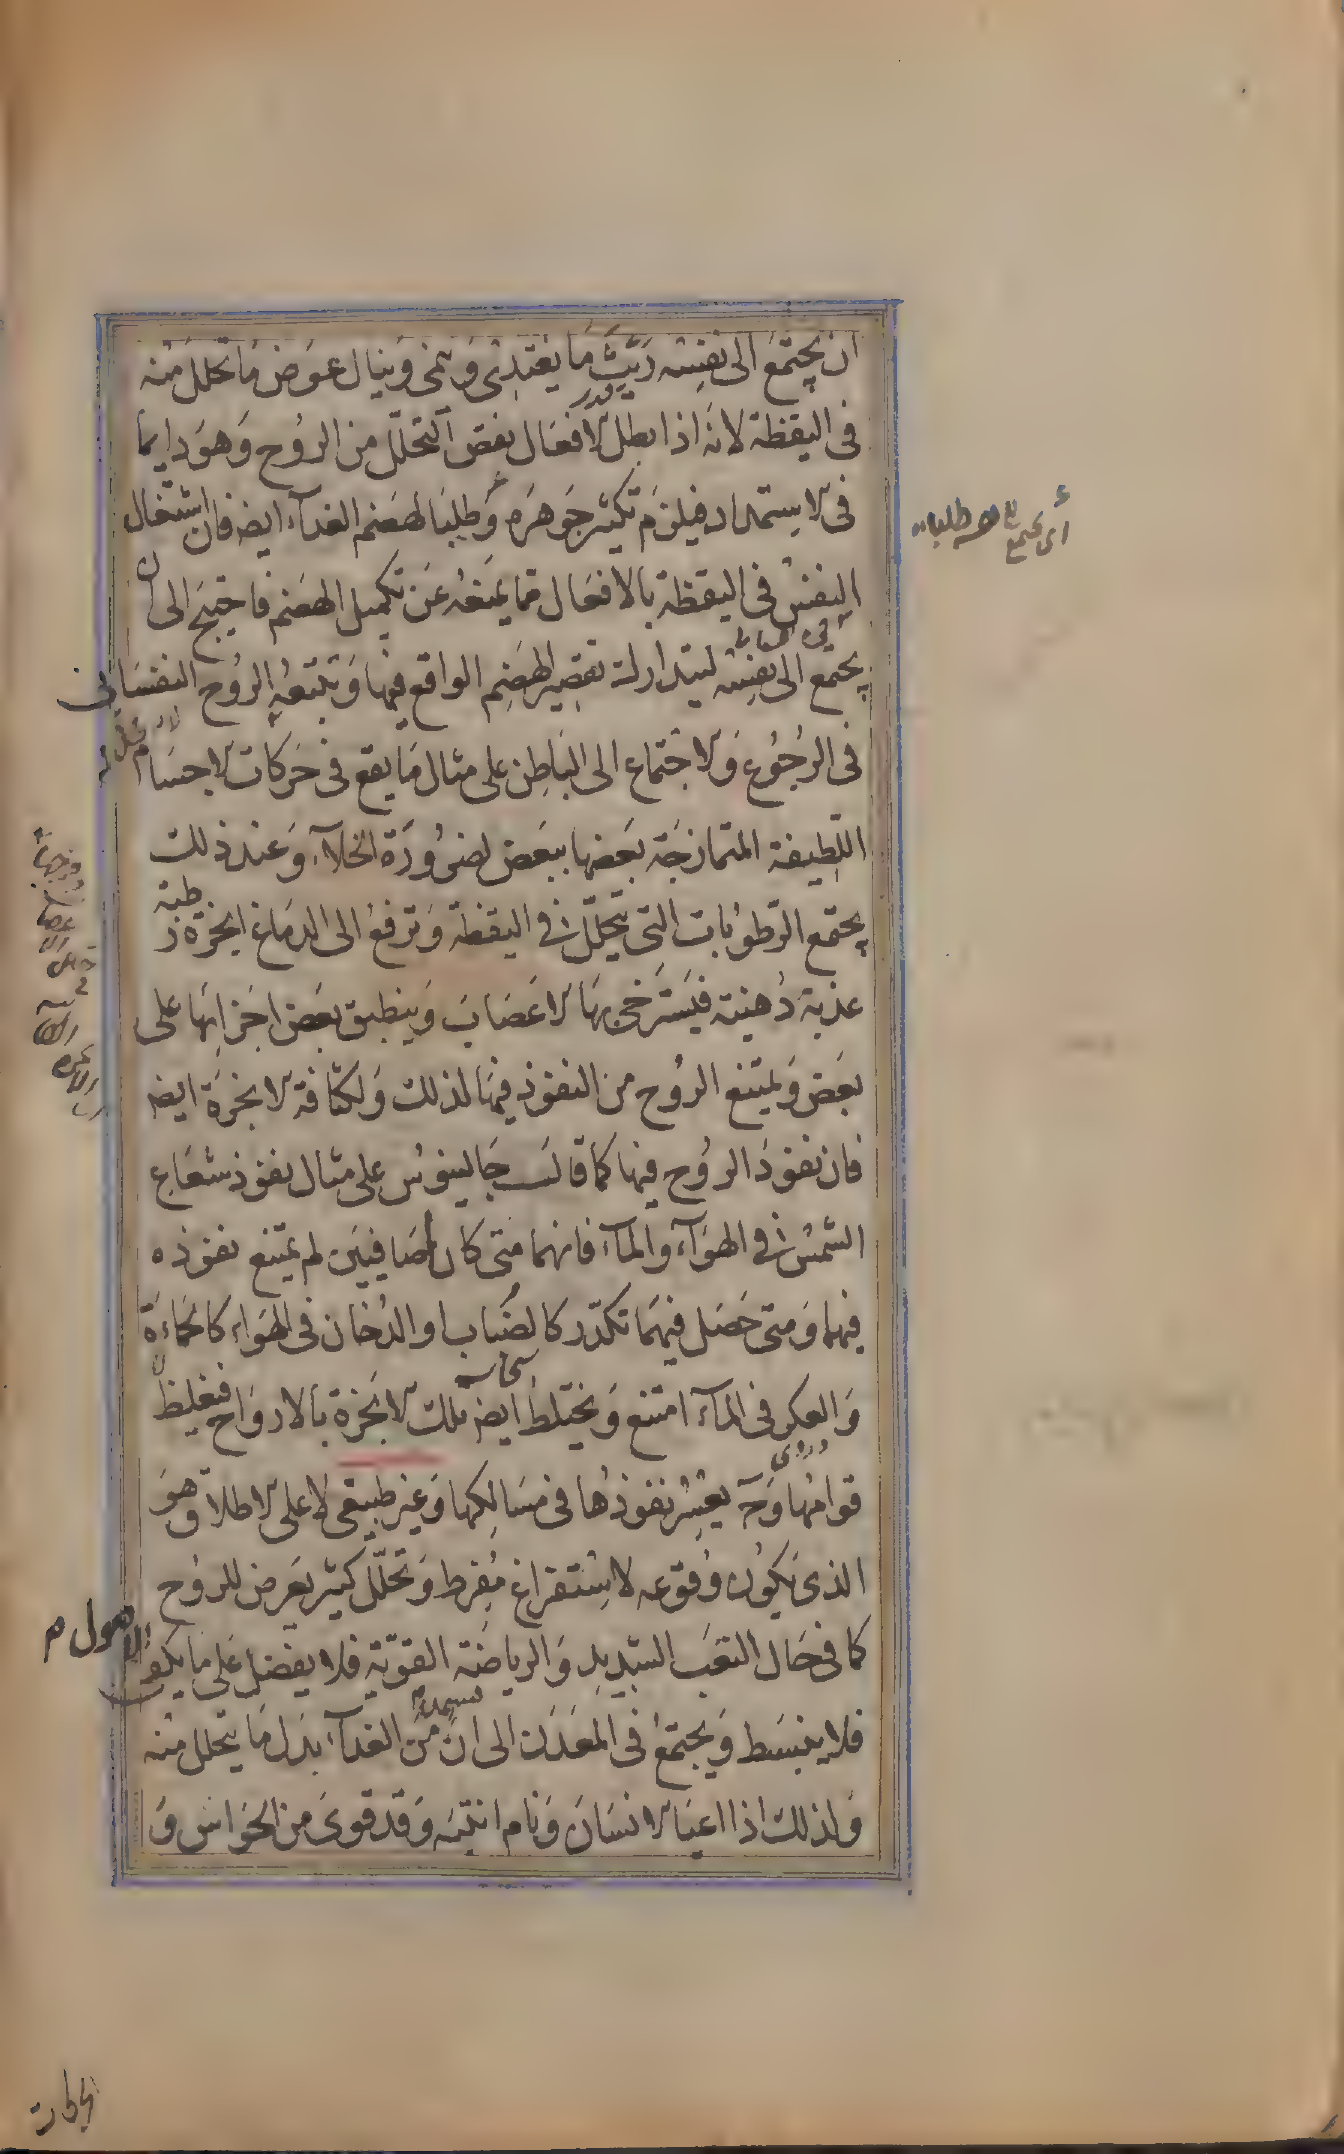 ان يجتمع الى نفسه ريث ما يغتذى وينمى وينال عوض ما تحلل منه
فى اليقظة لانه اذا بطل الافعال نقص التحلل من الروح وهو دايما
فى الاستمداد فيلزم تكثير جوهره وطلبا لهضم الغدآء ايضه فان اشتغال
النفس فى اليقظة بالافعال مما يمنعه عن تكميل الهضم فاحتيج الى ان
يجتمع الى نفسه ليتدارك تقصير الهضم الواقع فيها وتتبعه الروح النفسانى
فى الرجوع والاجتماع الى الباطن على مثال ما يقع فى حركات الاجسام
اللطيفة المتمازجة بعضها ببعض لضرورة الخلآء وعند ذلك
يجتمع الرطوبات التى يتحلل فى اليقظة وترفع الى الدماغ ابخرة رطبة
عذبة دهنية فيسترخى بها الاعصاب وينطبق بعض اجزائها على
بعض ويمتنع الروح من النفوذ فيها لذلك ولكثافة الابخرة ايضه
فان نفوذ الروح فيها كما قال جالينوس على مثال نفوذ شعاع
الشمس فى الهوآء والمآء فانهما متى كانا صافيين لم يمتنع نفوذه
فيهما ومتى حصل فيهما تكدر كالضباب او الدخان فى الهواء كالحماءة
والعكر فى المآء امتنع ويختلط ايضه تلك الابخرة بالارواح فيغلظ
قوامها وح يعسر نفوذها فى مسالكها وغير طبيعى لا على الاطلاق وهو
الذى يكون وقوعه لاستفراغ مفرط وتحلل كثير يعرض للروح
كما فى حال التعب الشديد والرياضة القوية فلا يفضل على ما يكفى الاصول
فلا ينبسط ويجتمع فى المعدن الى ان من الغدآء بدل ما يتحلل منه
ولذلك اذا اعيا الانسان ونام انتبه وقد قوى من الحواس و
اى يجتمع الى نفسه طلبا